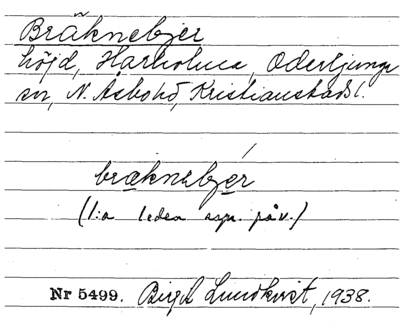 Bräknebjer
höjd, Harholma, Oderljunga
sn, N. Åsbo hd, Kristianstads l.
bræknebjer
(1:a leden asp. påv.)
Nr 5499. Birgit Lundkvist, 1938.